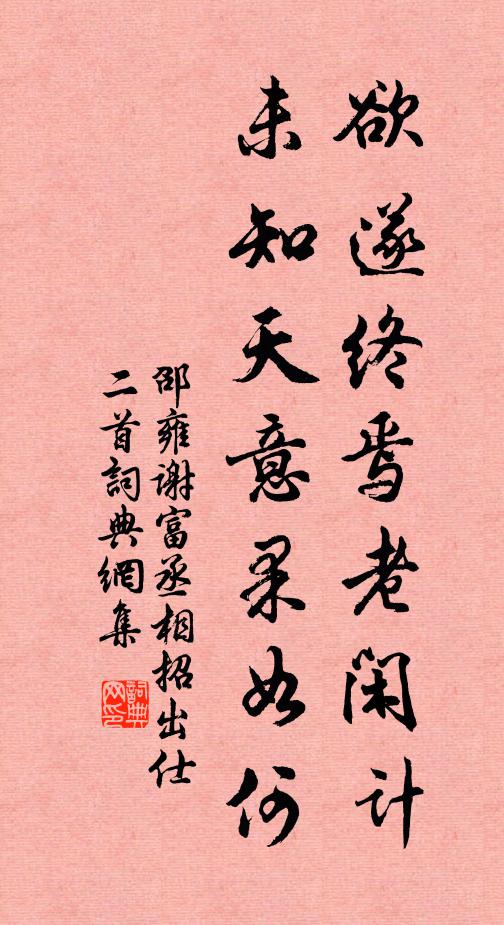 欲遂終焉老閑計
未知天意果如何
邵雍謝富丞相招出仕
二首詞典網集
詞典網印